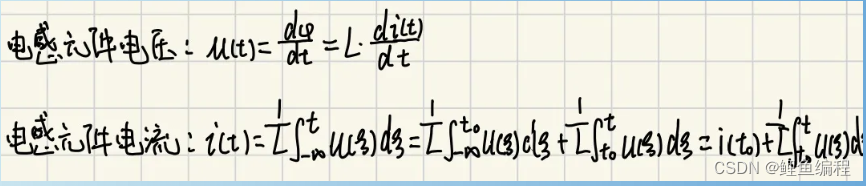 电感元件电压：u(t)=dφ/dt=L·di(t)/dt
电感元件电流：i(t)=1/L∫_{-∞}^{t}u(ξ)dξ=1/L∫_{-∞}^{t₀}u(ξ)dξ+1/L∫_{t₀}^{t}u(ξ)dξ=i(t₀)+1/L∫_{t₀}^{t}u(ξ)d
CSDN @鲤鱼编程